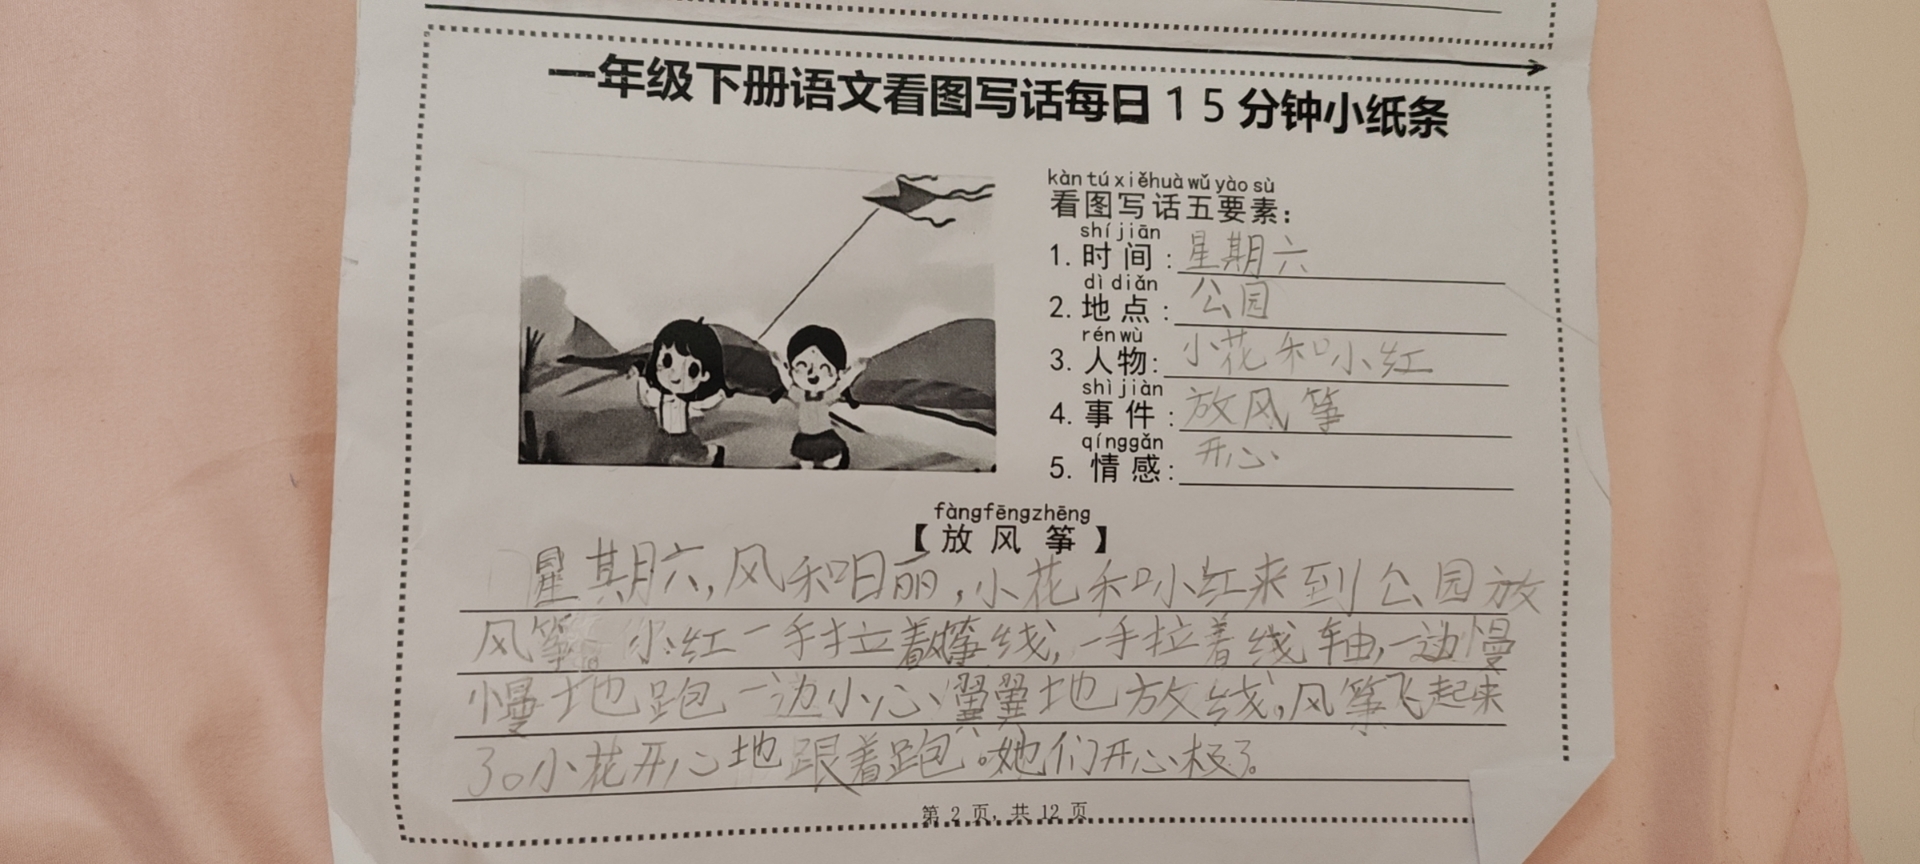 一年级下册语文看图写话每日15分钟小纸条
kàn tú xiě huà wǔ yào sù
看图写话五要素：
shí jiān
1. 时间：星期六
dì diǎn
2. 地点：公园
rén wù
3. 人物：小花和小红
shì jiàn
4. 事件：放风筝
qíng gǎn
5. 情感：开心
fàng fēng zhēng
【放风筝】
星期六，风和日丽，小花和小红来到公园放
风筝。小红一手拉着风筝线，一手拉着线轴，一边慢
慢地跑一边小心翼翼地放线，风筝飞起来
了。小花开心地跟着跑。她们开心极了。
第 2 页，共 12 页